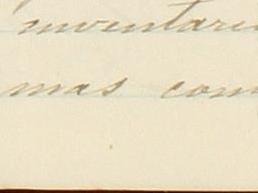 inventari
mas com